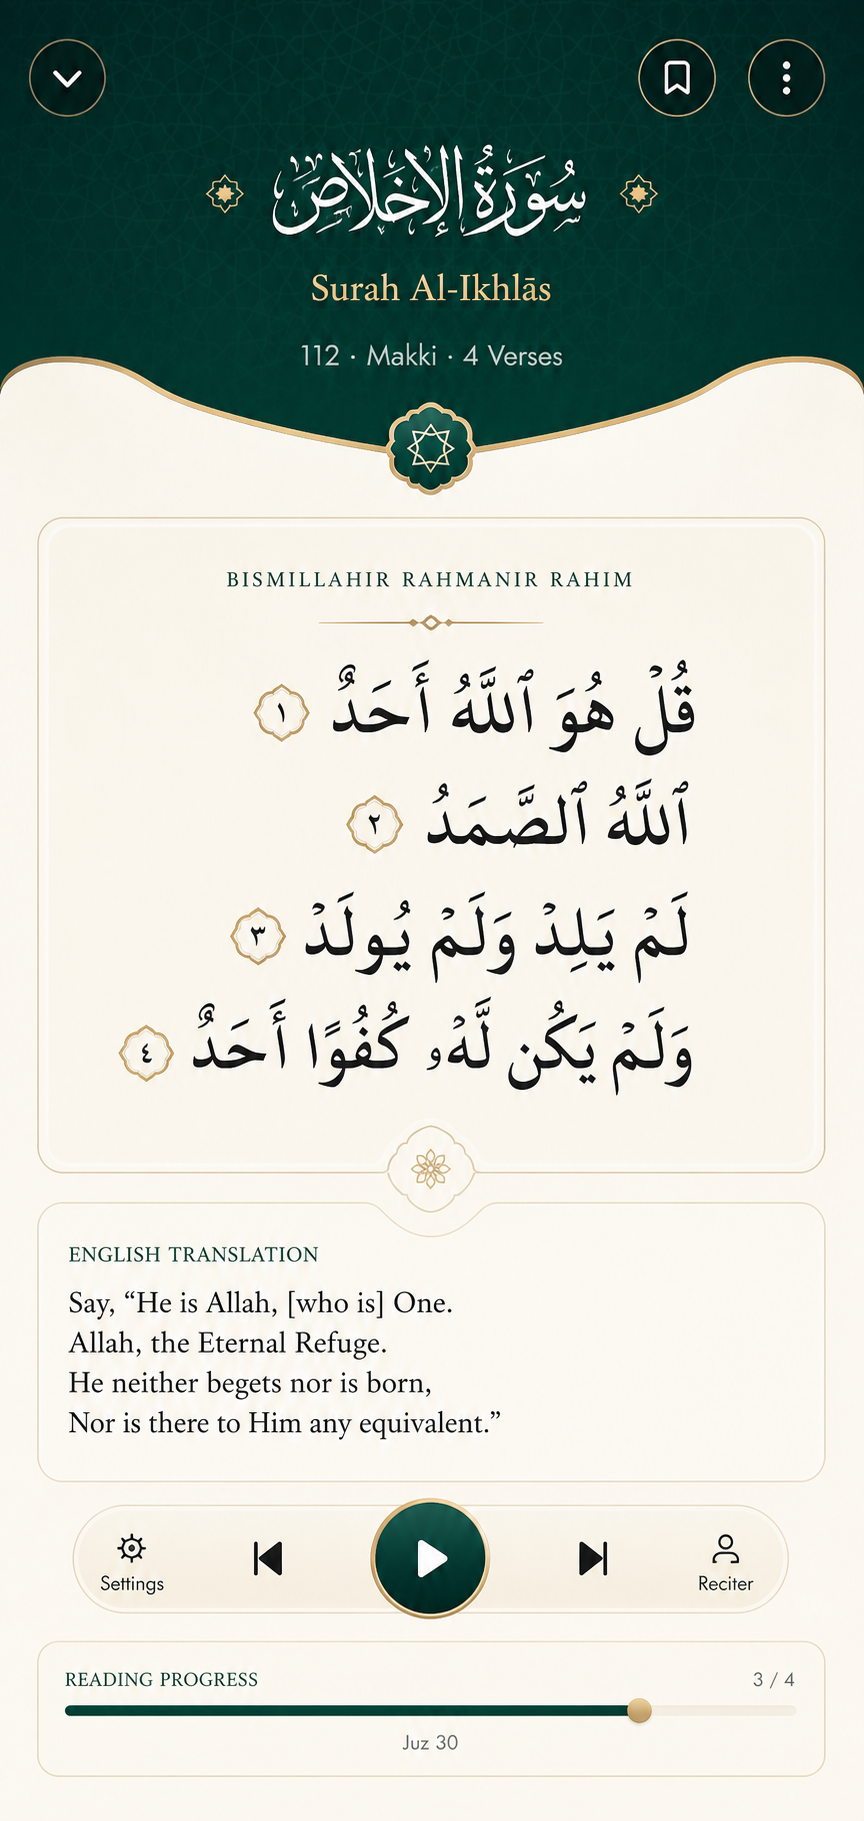 سُورَةُ الإِخْلَاصِ
Surah Al-Ikhlās
112 · Makki · 4 Verses
BISMILLAHIR RAHMANIR RAHIM
قُلْ هُوَ ٱللَّهُ أَحَدٌ ١
ٱللَّهُ ٱلصَّمَدُ ٢
لَمْ يَلِدْ وَلَمْ يُولَدْ ٣
وَلَمْ يَكُن لَّهُۥ كُفُوًا أَحَدٌ ٤
ENGLISH TRANSLATION
Say, “He is Allah, [who is] One.
Allah, the Eternal Refuge.
He neither begets nor is born,
Nor is there to Him any equivalent.”
Settings
Reciter
READING PROGRESS 3 / 4
Juz 30